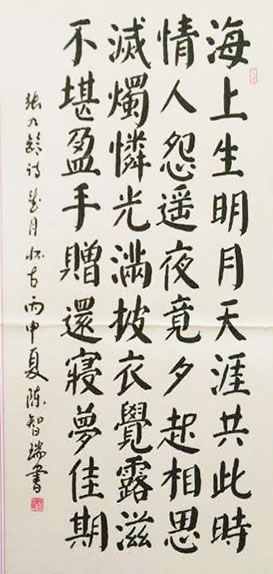 海上生明月天涯共此時
情人怨遥夜竟夕起相思
滅燭憐光滿披衣覺露滋
不堪盈手贈還寢夢佳期
張九齡詩望月怀古丙申夏陈智瑞書